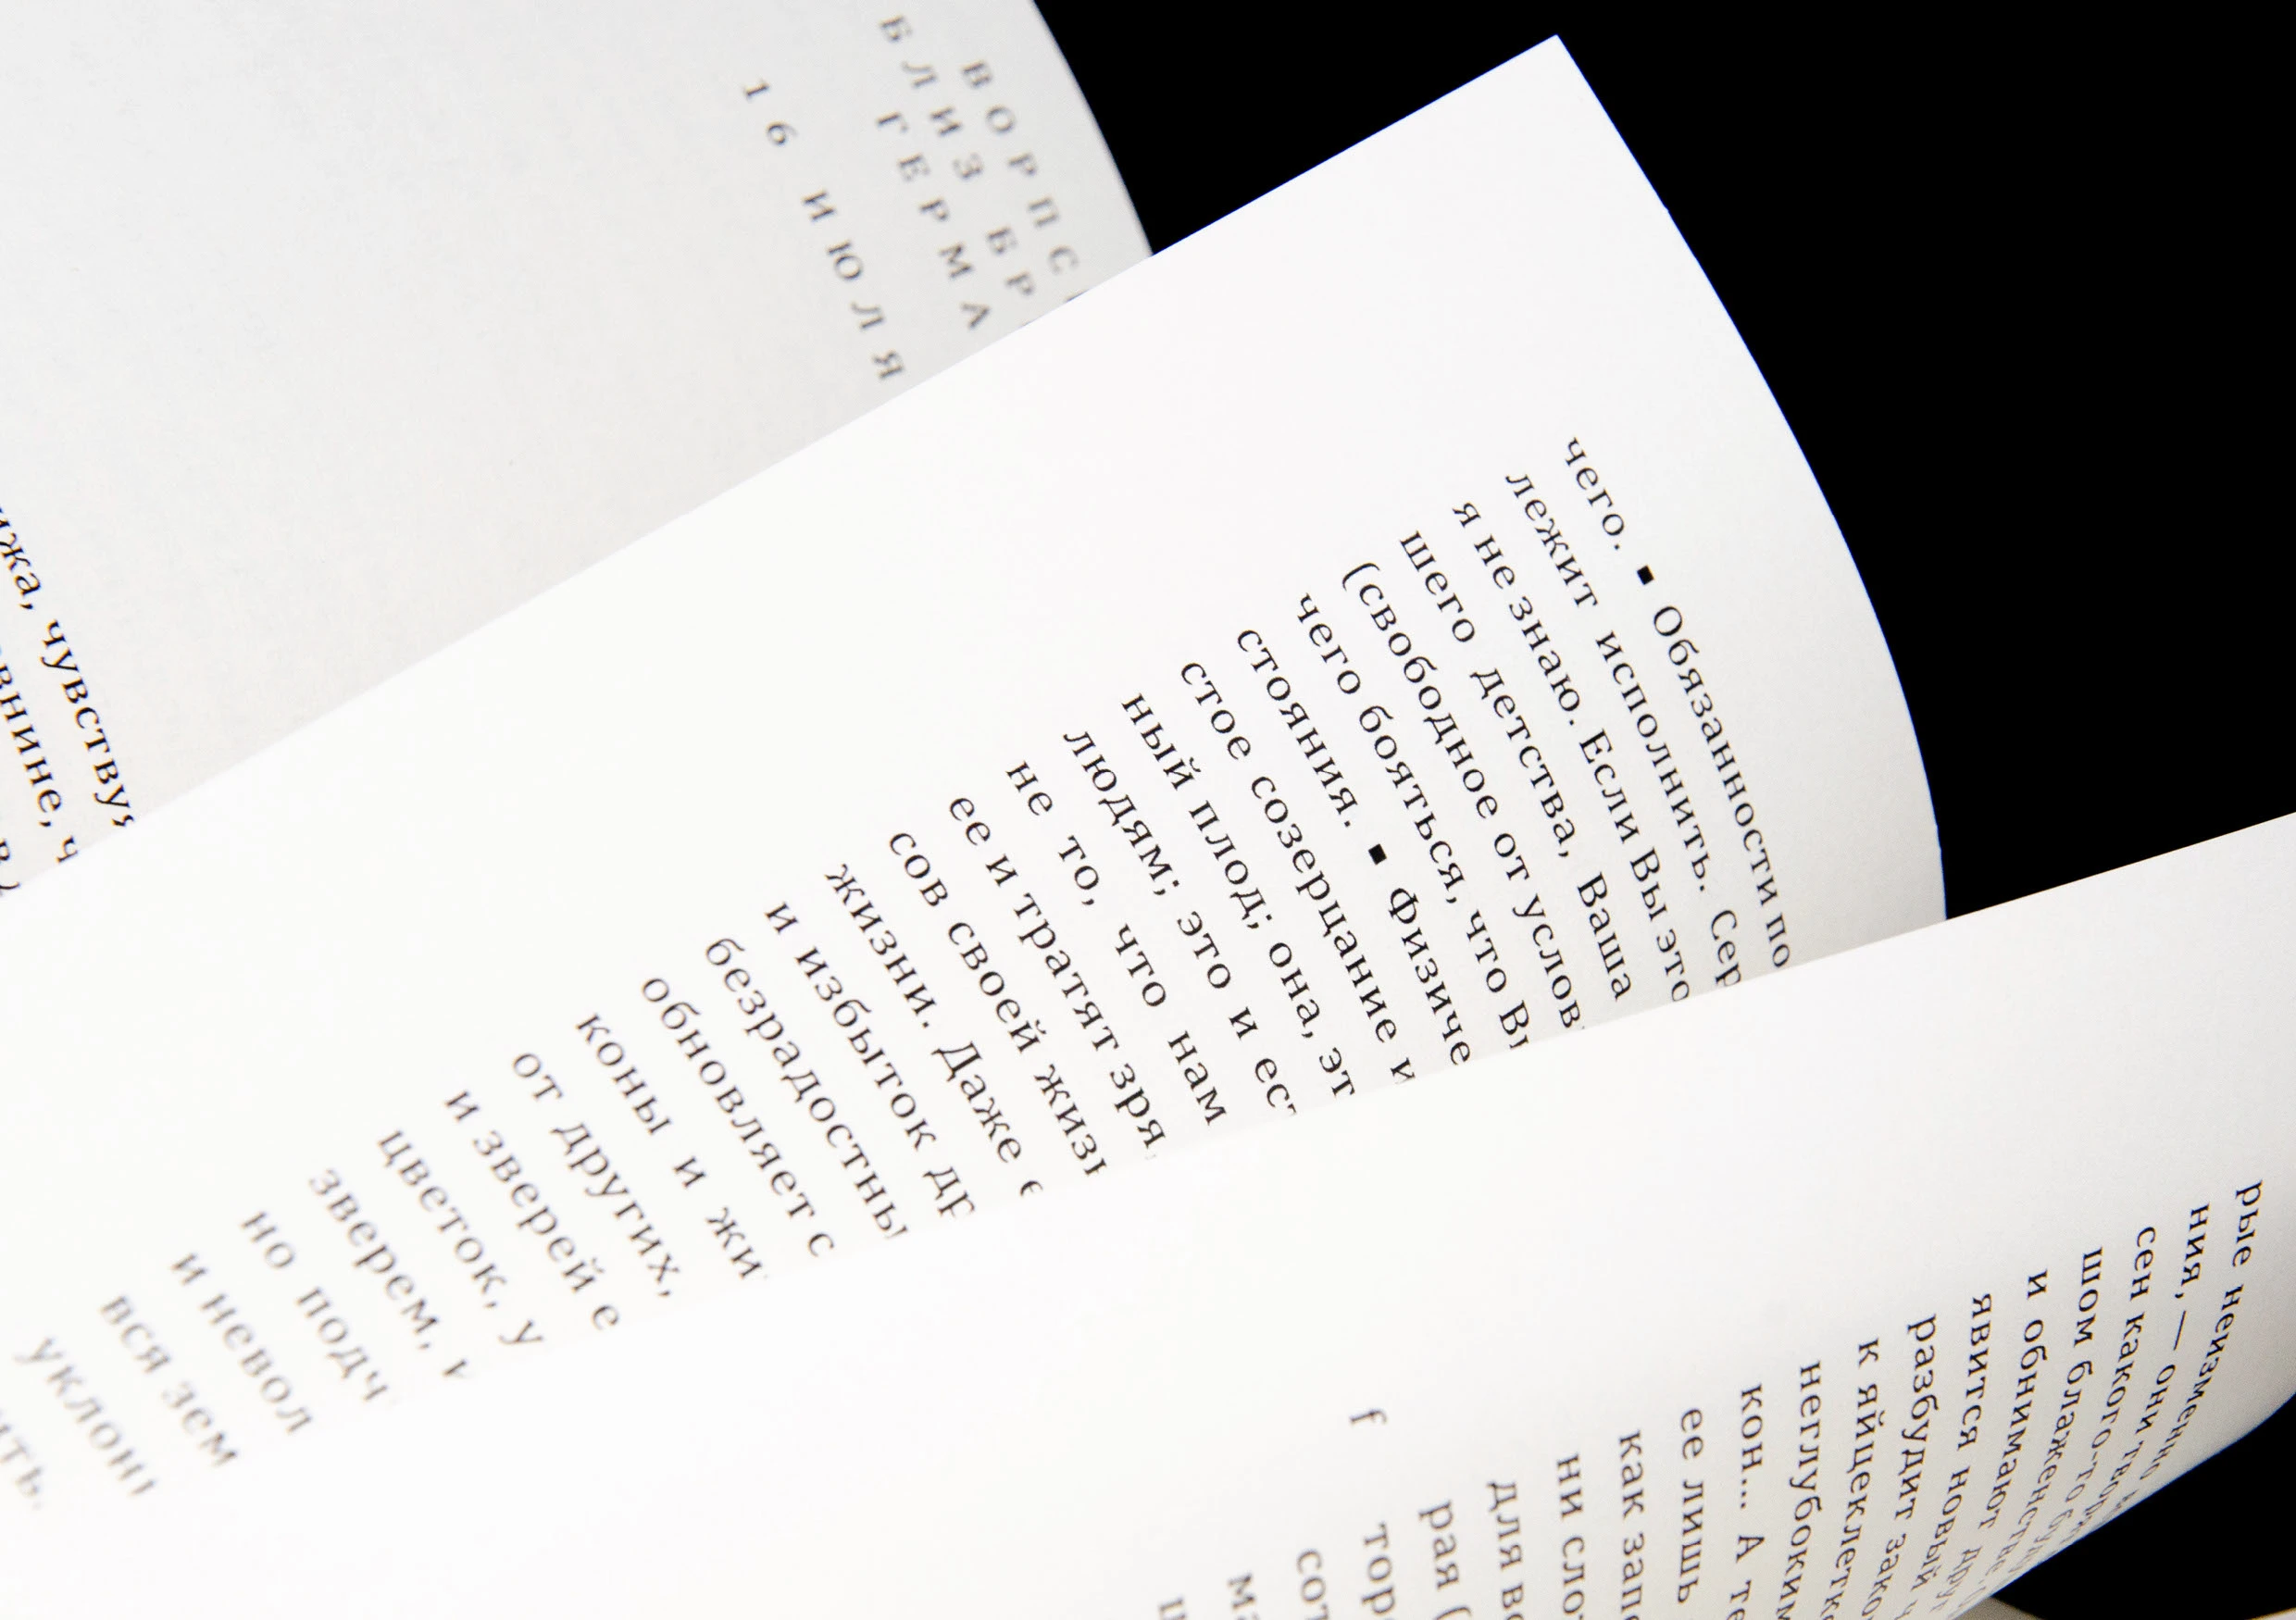 ВОРПС
БЛИЗ БР
ГЕРМА
16 ИЮЛЯ
чувству
чего. ▪ Обязанности по
лежит исполнить. Сер
я не знаю. Если Вы это
шего детства, Ваша
(свободное от услов
чего бояться, что В
стояния. ▪ Физиче
стое созерцание и
ный плод; она, эт
людям; это и ес
не то, что нам
ее и тратят зря
сов своей жизн
жизни. Даже
и избыток др
безрадостны
обновляет с
коны и жи
от других,
и зверей е
цветок, у
зверем, и
но подч
и невол
вся зем
уклони
рые неизменно
ния, — они твор
сен какого-то буд
шом блаженстве.
и обнимают дру
явится новый ч
разбудит зако
к яйцеклетк
неглубоким
кон... А те
ее лишь
как запе
ни слот
для вс
рая (
тор
сот
ма